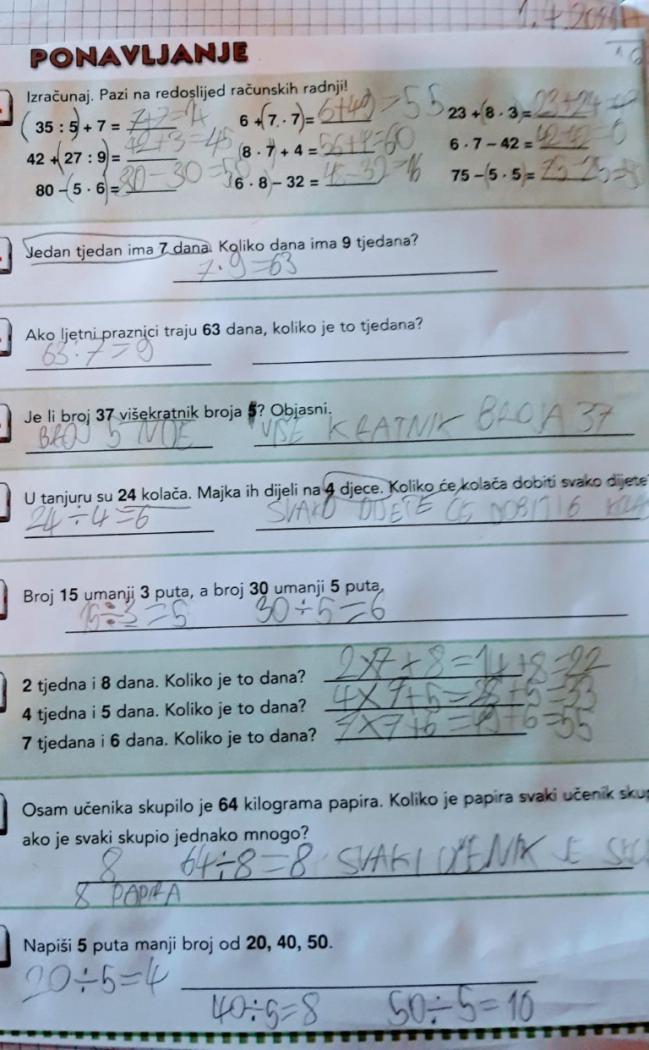 1.4.20
PONAVLJANJE
Izračunaj. Pazi na redoslijed računskih radnji!
(35 : 5) + 7 = 7+7=14 6 + (7 · 7) = 6+49=55 23 + (8 · 3) = 23+24=
42 + (27 : 9) = 42+3=45 (8 · 7) + 4 = 56+4=60 6 · 7 – 42 = 42-42=0
80 – (5 · 6) = 80-30=50 (6 · 8) – 32 = 48-32=16 75 – (5 · 5) = 75-25=
Jedan tjedan ima 7 dana. Koliko dana ima 9 tjedana?
7·9=63
Ako ljetni praznici traju 63 dana, koliko je to tjedana?
63:7=9
Je li broj 37 višekratnik broja 5? Objasni.
BROJ 5 VIŠE KRATNIK BROJA 37
U tanjuru su 24 kolača. Majka ih dijeli na 4 djece. Koliko će kolača dobiti svako dijete
24÷4=6 SVAKO DIJETE ĆE DOBITI 6
Broj 15 umanji 3 puta, a broj 30 umanji 5 puta.
15÷3=5 30÷5=6
2 tjedna i 8 dana. Koliko je to dana? 2×7+8=14+8=22
4 tjedna i 5 dana. Koliko je to dana? 4×7+5=28+5=33
7 tjedana i 6 dana. Koliko je to dana? 7×7+6=49+6=55
Osam učenika skupilo je 64 kilograma papira. Koliko je papira svaki učenik sku
ako je svaki skupio jednako mnogo?
8 64÷8=8 SVAKI UČENIK JE
8 PAPIRA
Napiši 5 puta manji broj od 20, 40, 50.
20÷5=4
40÷5=8 50÷5=10